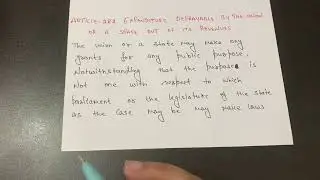 ARTICLE-282 EXPENDITURE DEFRAYABLE BY THE UNION
OR A STATE OUT OF ITS REVENUES
The union or a state may make any
grants for any public purpose,
Notwithstanding that the purpose is
Not one with respect to which
parliament or the legislature of the state
as the case may be may make laws